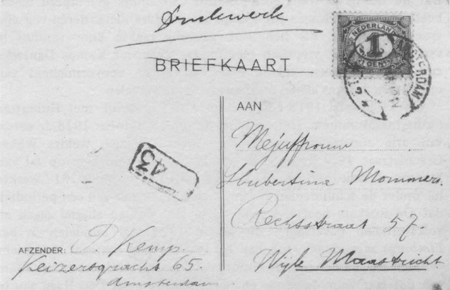 Drukwerk
NEDERLAND
1
CENT
AMSTERDAM
BRIEFKAART
AAN
Mejuffrouw
Hubertine Mommers.
Rechtstraat 57.
Wijk Maastricht
43
AFZENDER: P. Kemp.
Keizersgracht 65.
Amsterdam